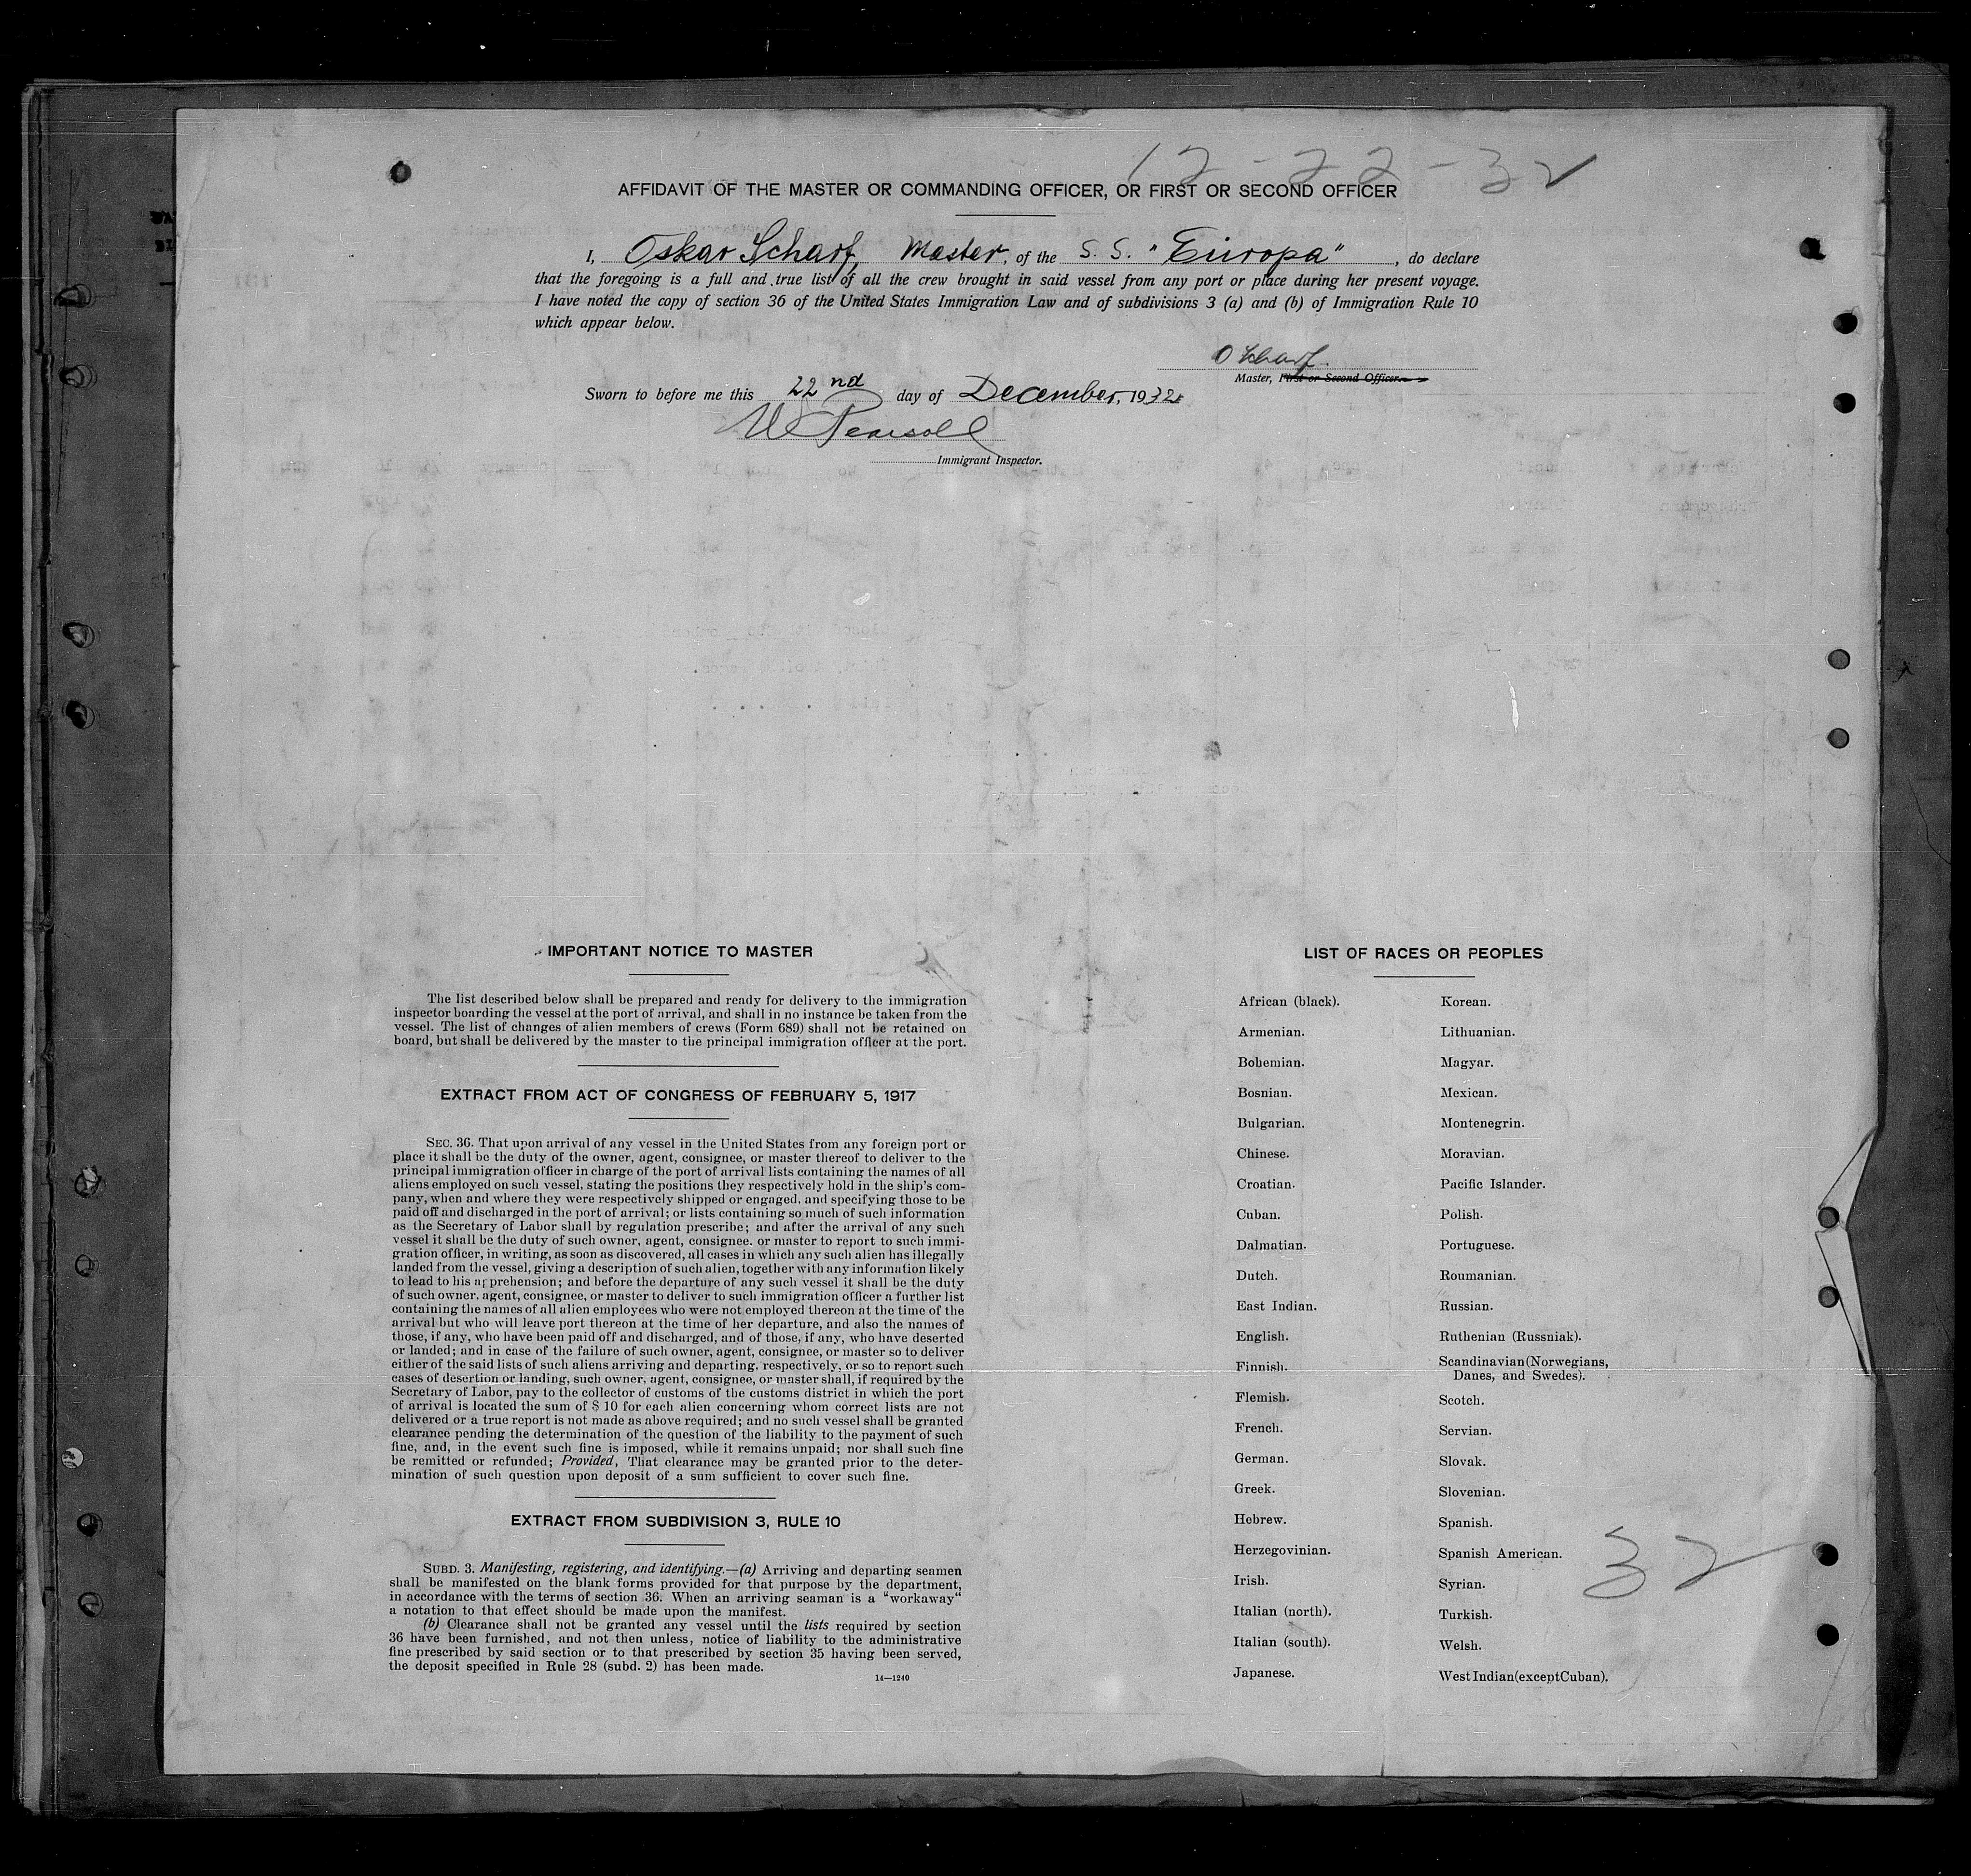 12-22-32
AFFIDAVIT OF THE MASTER OR COMMANDING OFFICER, OR FIRST OR SECOND OFFICER
I, Oskar Scharf, Master, of the S. S. "Europa", do declare
that the foregoing is a full and true list of all the crew brought in said vessel from any port or place during her present voyage.
I have noted the copy of section 36 of the United States Immigration Law and of subdivisions 3 (a) and (b) of Immigration Rule 10
which appear below.
O Scharf.
Master, First or Second Officer.
Sworn to before me this 22nd day of December, 1932
Immigrant Inspector.
IMPORTANT NOTICE TO MASTER
The list described below shall be prepared and ready for delivery to the immigration
inspector boarding the vessel at the port of arrival, and shall in no instance be taken from the
vessel. The list of changes of alien members of crews (Form 689) shall not be retained on
board, but shall be delivered by the master to the principal immigration officer at the port.
EXTRACT FROM ACT OF CONGRESS OF FEBRUARY 5, 1917
SEC. 36. That upon arrival of any vessel in the United States from any foreign port or
place it shall be the duty of the owner, agent, consignee, or master thereof to deliver to the
principal immigration officer in charge of the port of arrival lists containing the names of all
aliens employed on such vessel, stating the positions they respectively hold in the ship's com-
pany, when and where they were respectively shipped or engaged, and specifying those to be
paid off and discharged in the port of arrival; or lists containing so much of such information
as the Secretary of Labor shall by regulation prescribe; and after the arrival of any such
vessel it shall be the duty of such owner, agent, consignee. or master to report to such immi-
gration officer, in writing, as soon as discovered, all cases in which any such alien has illegally
landed from the vessel, giving a description of such alien, together with any information likely
to lead to his apprehension; and before the departure of any such vessel it shall be the duty
of such owner, agent, consignee, or master to deliver to such immigration officer a further list
containing the names of all alien employees who were not employed thereon at the time of the
arrival but who will leave port thereon at the time of her departure, and also the names of
those, if any, who have been paid off and discharged, and of those, if any, who have deserted
or landed; and in case of the failure of such owner, agent, consignee, or master so to deliver
either of the said lists of such aliens arriving and departing, respectively, or so to report such
cases of desertion or landing, such owner, agent, consignee, or master shall, if required by the
Secretary of Labor, pay to the collector of customs of the customs district in which the port
of arrival is located the sum of $ 10 for each alien concerning whom correct lists are not
delivered or a true report is not made as above required; and no such vessel shall be granted
clearance pending the determination of the question of the liability to the payment of such
fine, and, in the event such fine is imposed, while it remains unpaid; nor shall such fine
be remitted or refunded; Provided, That clearance may be granted prior to the deter-
mination of such question upon deposit of a sum sufficient to cover such fine.
EXTRACT FROM SUBDIVISION 3, RULE 10
SUBD. 3. Manifesting, registering, and identifying.—(a) Arriving and departing seamen
shall be manifested on the blank forms provided for that purpose by the department,
in accordance with the terms of section 36. When an arriving seaman is a "workaway"
a notation to that effect should be made upon the manifest.
(b) Clearance shall not be granted any vessel until the lists required by section
36 have been furnished, and not then unless, notice of liability to the administrative
fine prescribed by said section or to that prescribed by section 35 having been served,
the deposit specified in Rule 28 (subd. 2) has been made.
14—1240
LIST OF RACES OR PEOPLES
African (black).
Armenian.
Bohemian.
Bosnian.
Bulgarian.
Chinese.
Croatian.
Cuban.
Dalmatian.
Dutch.
East Indian.
English.
Finnish.
Flemish.
French.
German.
Greek.
Hebrew.
Herzegovinian.
Irish.
Italian (north).
Italian (south).
Japanese.
Korean.
Lithuanian.
Magyar.
Mexican.
Montenegrin.
Moravian.
Pacific Islander.
Polish.
Portuguese.
Roumanian.
Russian.
Ruthenian (Russniak).
Scandinavian (Norwegians,
Danes, and Swedes).
Scotch.
Servian.
Slovak.
Slovenian.
Spanish.
Spanish American.
Syrian.
Turkish.
Welsh.
West Indian (except Cuban).
32